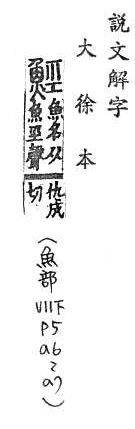 説文解字
大徐本
魚名从
魚巠聲
仇成
切
（魚部
VIII下
P5
a6
〜
a7）